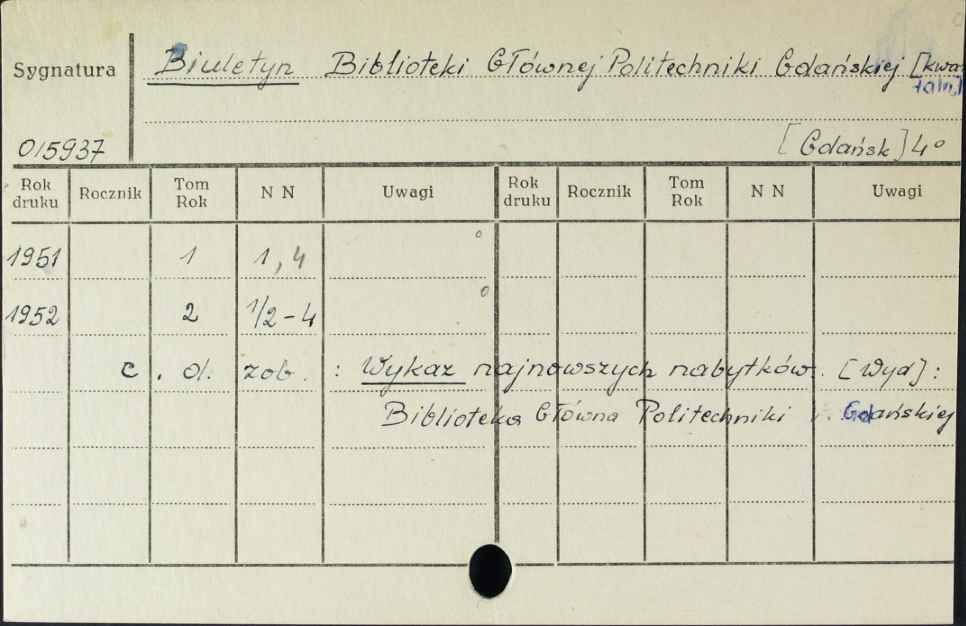 Sygnatura
Biuletyn Biblioteki Głównej Politechniki Gdańskiej [kwar
taln.]
015937
[Gdańsk] 4°
Rok druku Rocznik Tom Rok N N Uwagi Rok druku Rocznik Tom Rok N N Uwagi
1951 1 1, 4 °
1952 2 1/2-4 °
c. d. zob. : Wykaz najnowszych nabytków. [Wyd]:
Biblioteka Główna Politechniki Gdańskiej